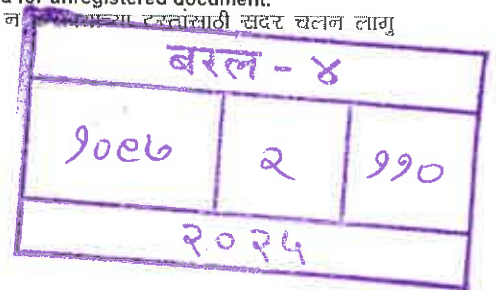 for unregistered document.
न दस्तांसाठी सदर चलन लागु
बरल - ४
१०९७ २ ११०
२०२५